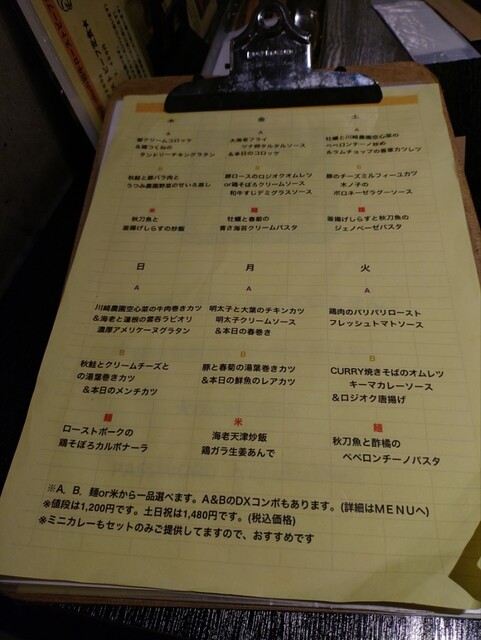 木
金
土
A
A
A
蟹クリームコロッケ
&鶏つくねの
タンドリーチキングラタン
大海老フライ
ツナ卵タルタルソース
&本日のコロッケ
牡蠣と川崎農園空心菜の
ペペロンチーノ炒め
&ラムチョップの香草カツレツ
B
B
B
秋鮭と豚バラ肉と
うつみ農園野菜のせいろ蒸し
豚ロースのロジオクオムレツ
or鶏そぼろクリームソース
和牛すじデミグラスソース
豚のチーズミルフィーユカツ
木ノ子の
ボロネーゼラグーソース
米
麺
麺
秋刀魚と
釜揚げしらすの炒飯
牡蠣と春菊の
青さ海苔クリームパスタ
釜揚げしらすと秋刀魚の
ジェノベーゼパスタ
日
月
火
A
A
A
川崎農園空心菜の牛肉巻きカツ
&海老と蓮根の雲呑ラビオリ
濃厚アメリケーヌグラタン
明太子と大葉のチキンカツ
明太子クリームソース
&本日の春巻き
鶏肉のパリパリロースト
フレッシュトマトソース
B
B
B
秋鮭とクリームチーズと
の湯葉巻きカツ
&本日のメンチカツ
豚と春菊の湯葉巻きカツ
&本日の鮮魚のレアカツ
CURRY焼きそばのオムレツ
キーマカレーソース
&ロジオク唐揚げ
麺
米
麺
ローストポークの
鶏そぼろカルボナーラ
海老天津炒飯
鶏ガラ生姜あんで
秋刀魚と酢橘の
ペペロンチーノパスタ
※A．B．麺or米から一品選べます。A&BのDXコンボもあります。(詳細はMENUへ)
※値段は1,200円です。土日祝は1,480円です。(税込価格)
※ミニカレーもセットのみご提供してますので、おすすめです